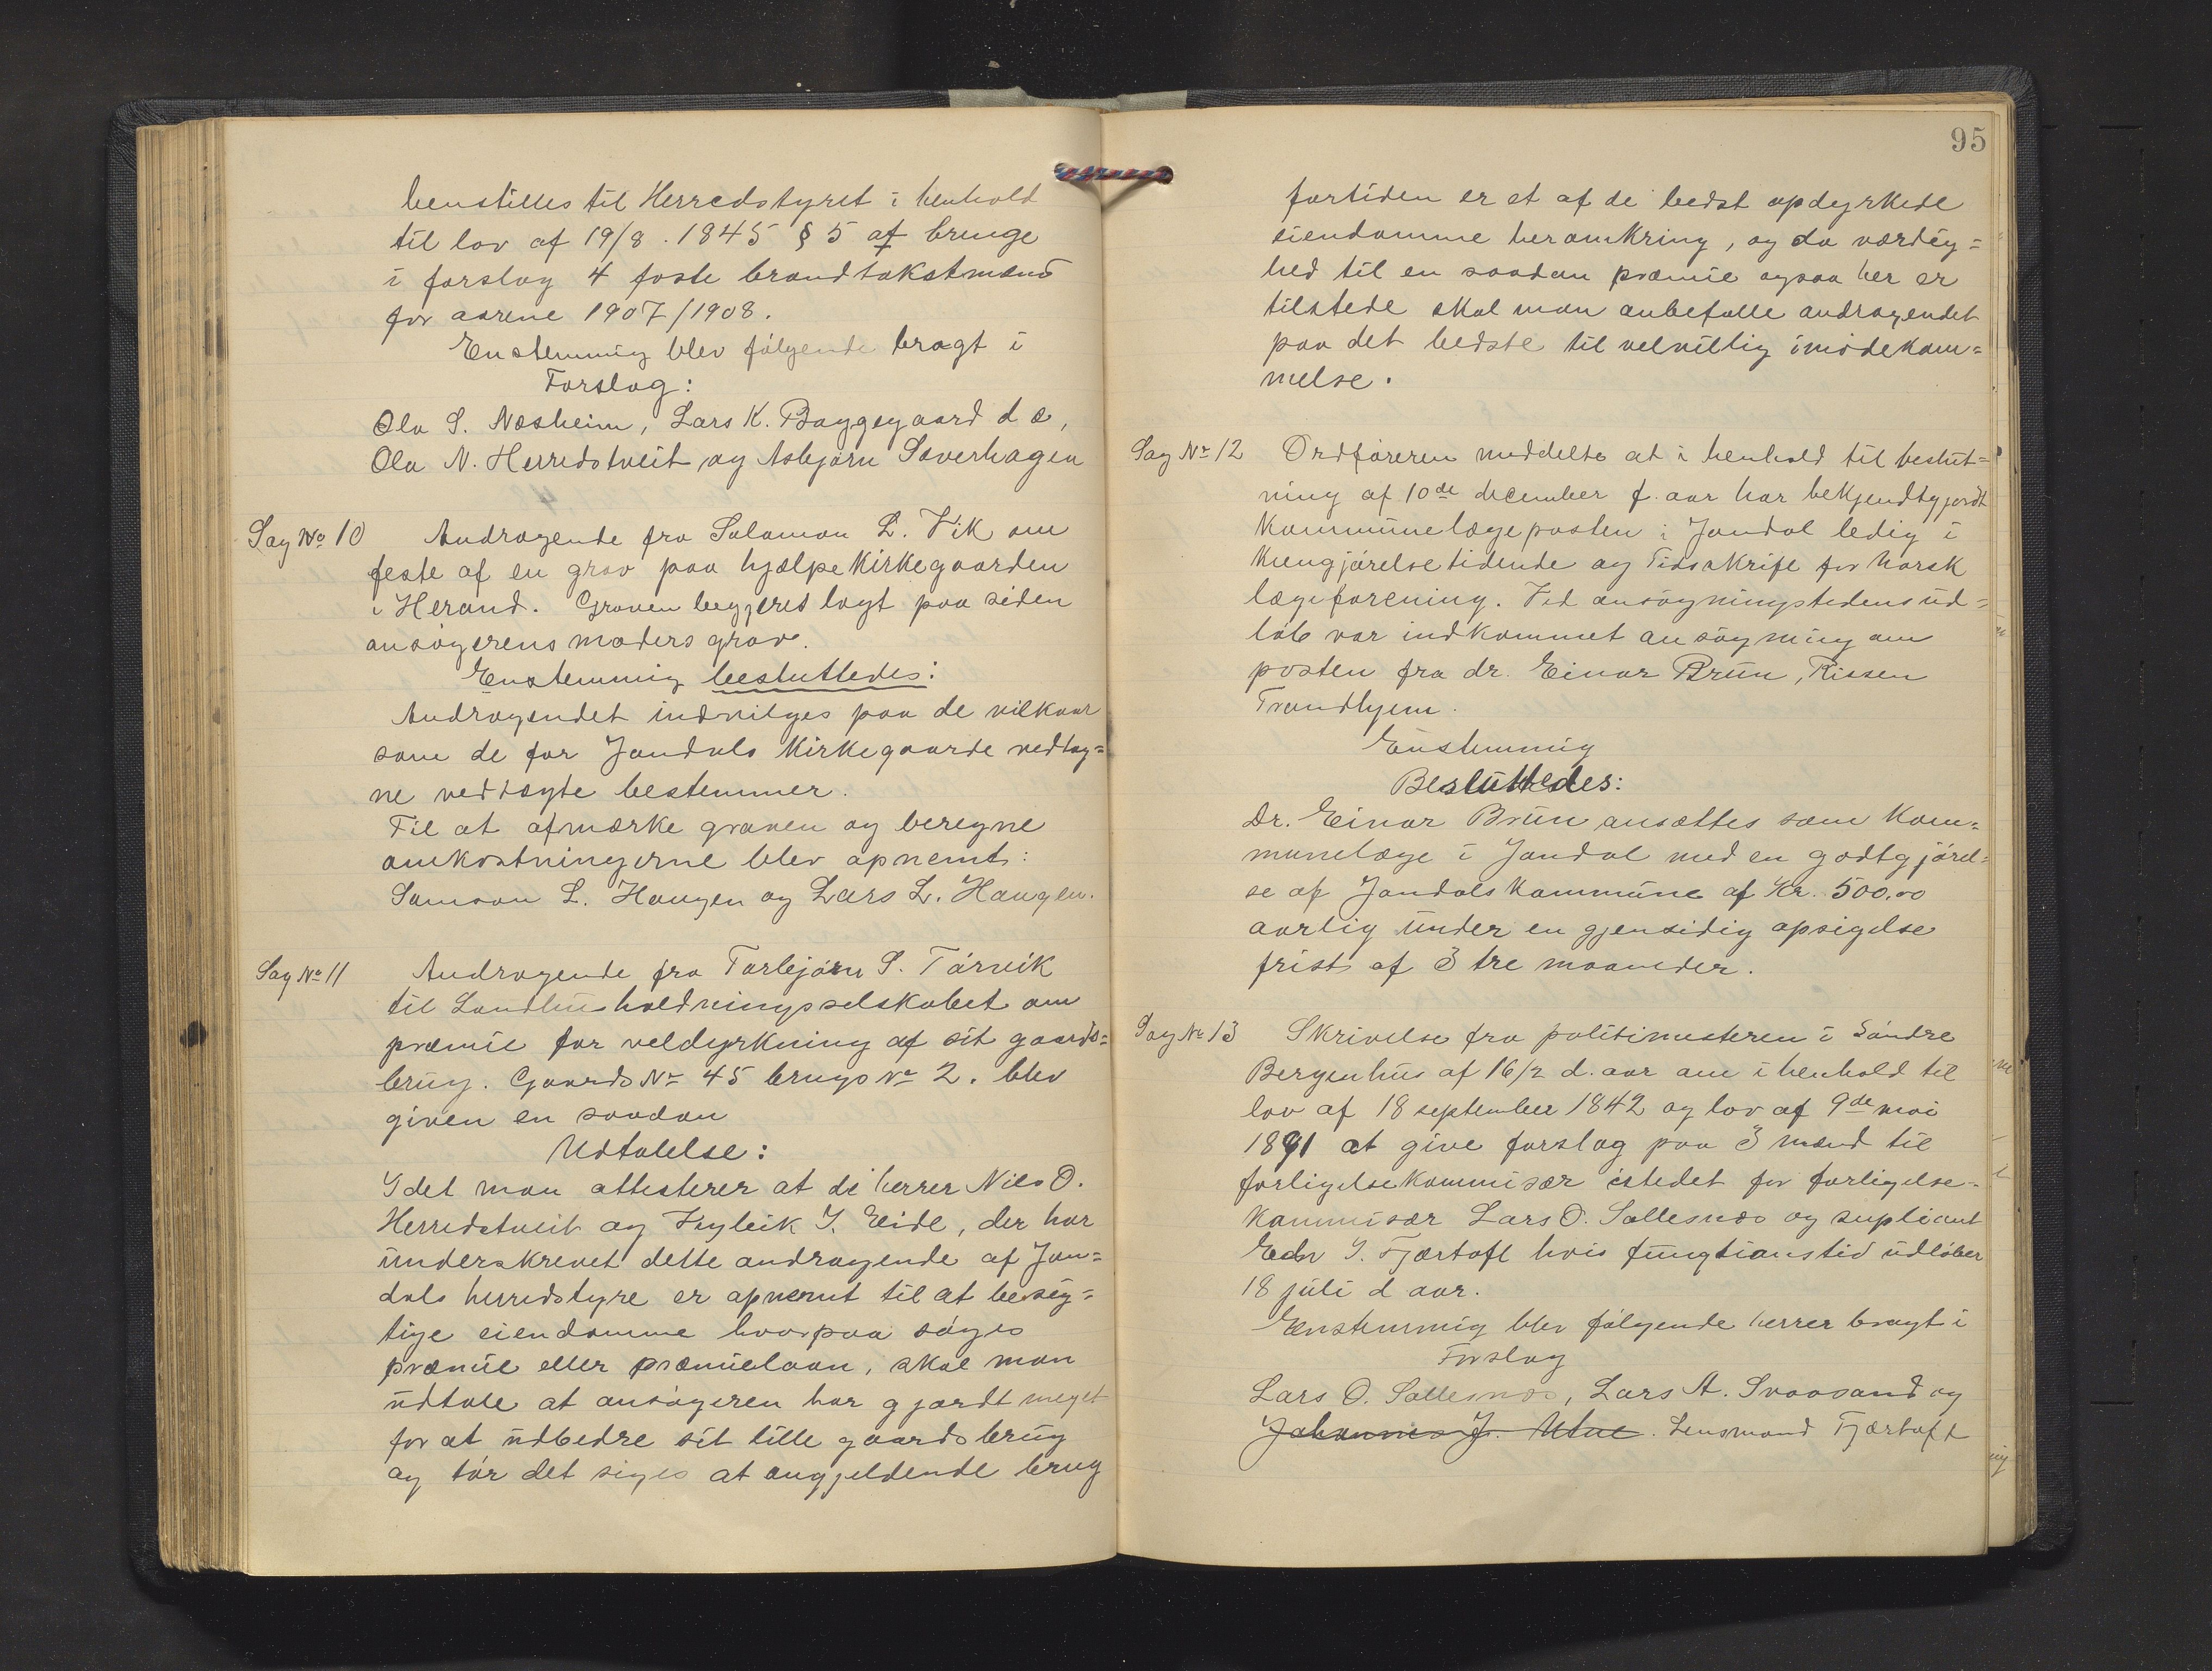 henstilles til Herredstyret i henhold
til lov af 19/8. 1845 § 5 af bringe
i forslag 4 faste brandtakstmænd
for aarene 1907/1908.
Enstemmig blev følgende bragt i
Forslag:
Ola S. Næsheim, Lars K. Byggegaard d æ,
Ola N. Herredstveit og Asbjørn Saverhagen
Sag No 10
Andragende fra Salamon L. Vik om
feste af en grav paa hjælpekirkegaarden
i Herand. Graven begjæres lagt paa siden
ansøgerens moders grav.
Enstemmig besluttedes:
Andragendet indvilges paa de vilkaar
som de for Jondals kirkegaarde vedtag=
ne vedtægte bestemmer.
Til at afmærke graven og beregne
omkostningerne blev opnemt:
Samson L. Haugen og Lars L. Haugen.
Sag No 11
Andragende fra Torbjørn S. Tørvik
til Landhusholdningsselskabet om
præmie for veldyrkning af sit gaards=
brug. Gaards No 45 brugs No 2. blev
given en saadan
Udtalelse:
Idet man attesterer at de herrer Nils O.
Herredstveit og Tryleik I. Eide, der har
underskrevet dette andragende af Jon=
dals herredstyre er opnemt til at besig=
tige eiendomme hvorpaa søges
præmie eller præmielaan, skal man
udtale at ansøgeren har gjordt meget
for at udbedre sit lille gaardsbrug
og tør det siges at angjeldende brug
95
fortiden er et af de bedst opdyrkede
eiendomme heromkring, og da værdig=
hed til en saadan præmie ogsaa her er
tilstede skal man anbefalle andragendet
paa det bedste til velvillig imødekom=
melse.
Sag No 12
Ordføreren meddelte at i henhold til beslut=
ning af 10de december f. aar har bekjendtgjordt
kommunelægeposten i Jondal ledig i
Kungjørelsetidende og Tidsskrift for Norsk
lægeforening. Ved ansøgningstidens ud=
løb var indkommet ansøgning om
posten fra dr. Einar Brun, Rissen
Trondhjem.
Enstemmig
Besluttedes:
Dr. Einar Brun ansættes som Kom=
munelæge i Jondal med en godtgjørel=
se af Jondals kommune af Kr. 500.00
aarlig under en gjensidig opsigelse
frist af 3 tre maaneder.
Sag No 13
Skrivelse fra politimesteren i Søndre
Bergenhus af 16/2 d. aar om i henhold til
lov af 18 september 1842 og lov af 9de mai
1891 at give forslag paa 3 mænd til
forligelseskommisær istedet for forligelse=
kommisær Lars O. Sallesnæs og supliant
Edv I. Fjærtoft hvis fungtionstid udløber
18 juli d aar.
Enstemmig blev følgende herrer bragt i
Forslag
Lars O. Sallesnæs, Lars A. Svaasand og
Johannes J. Utne. Lensmand Fjærtoft